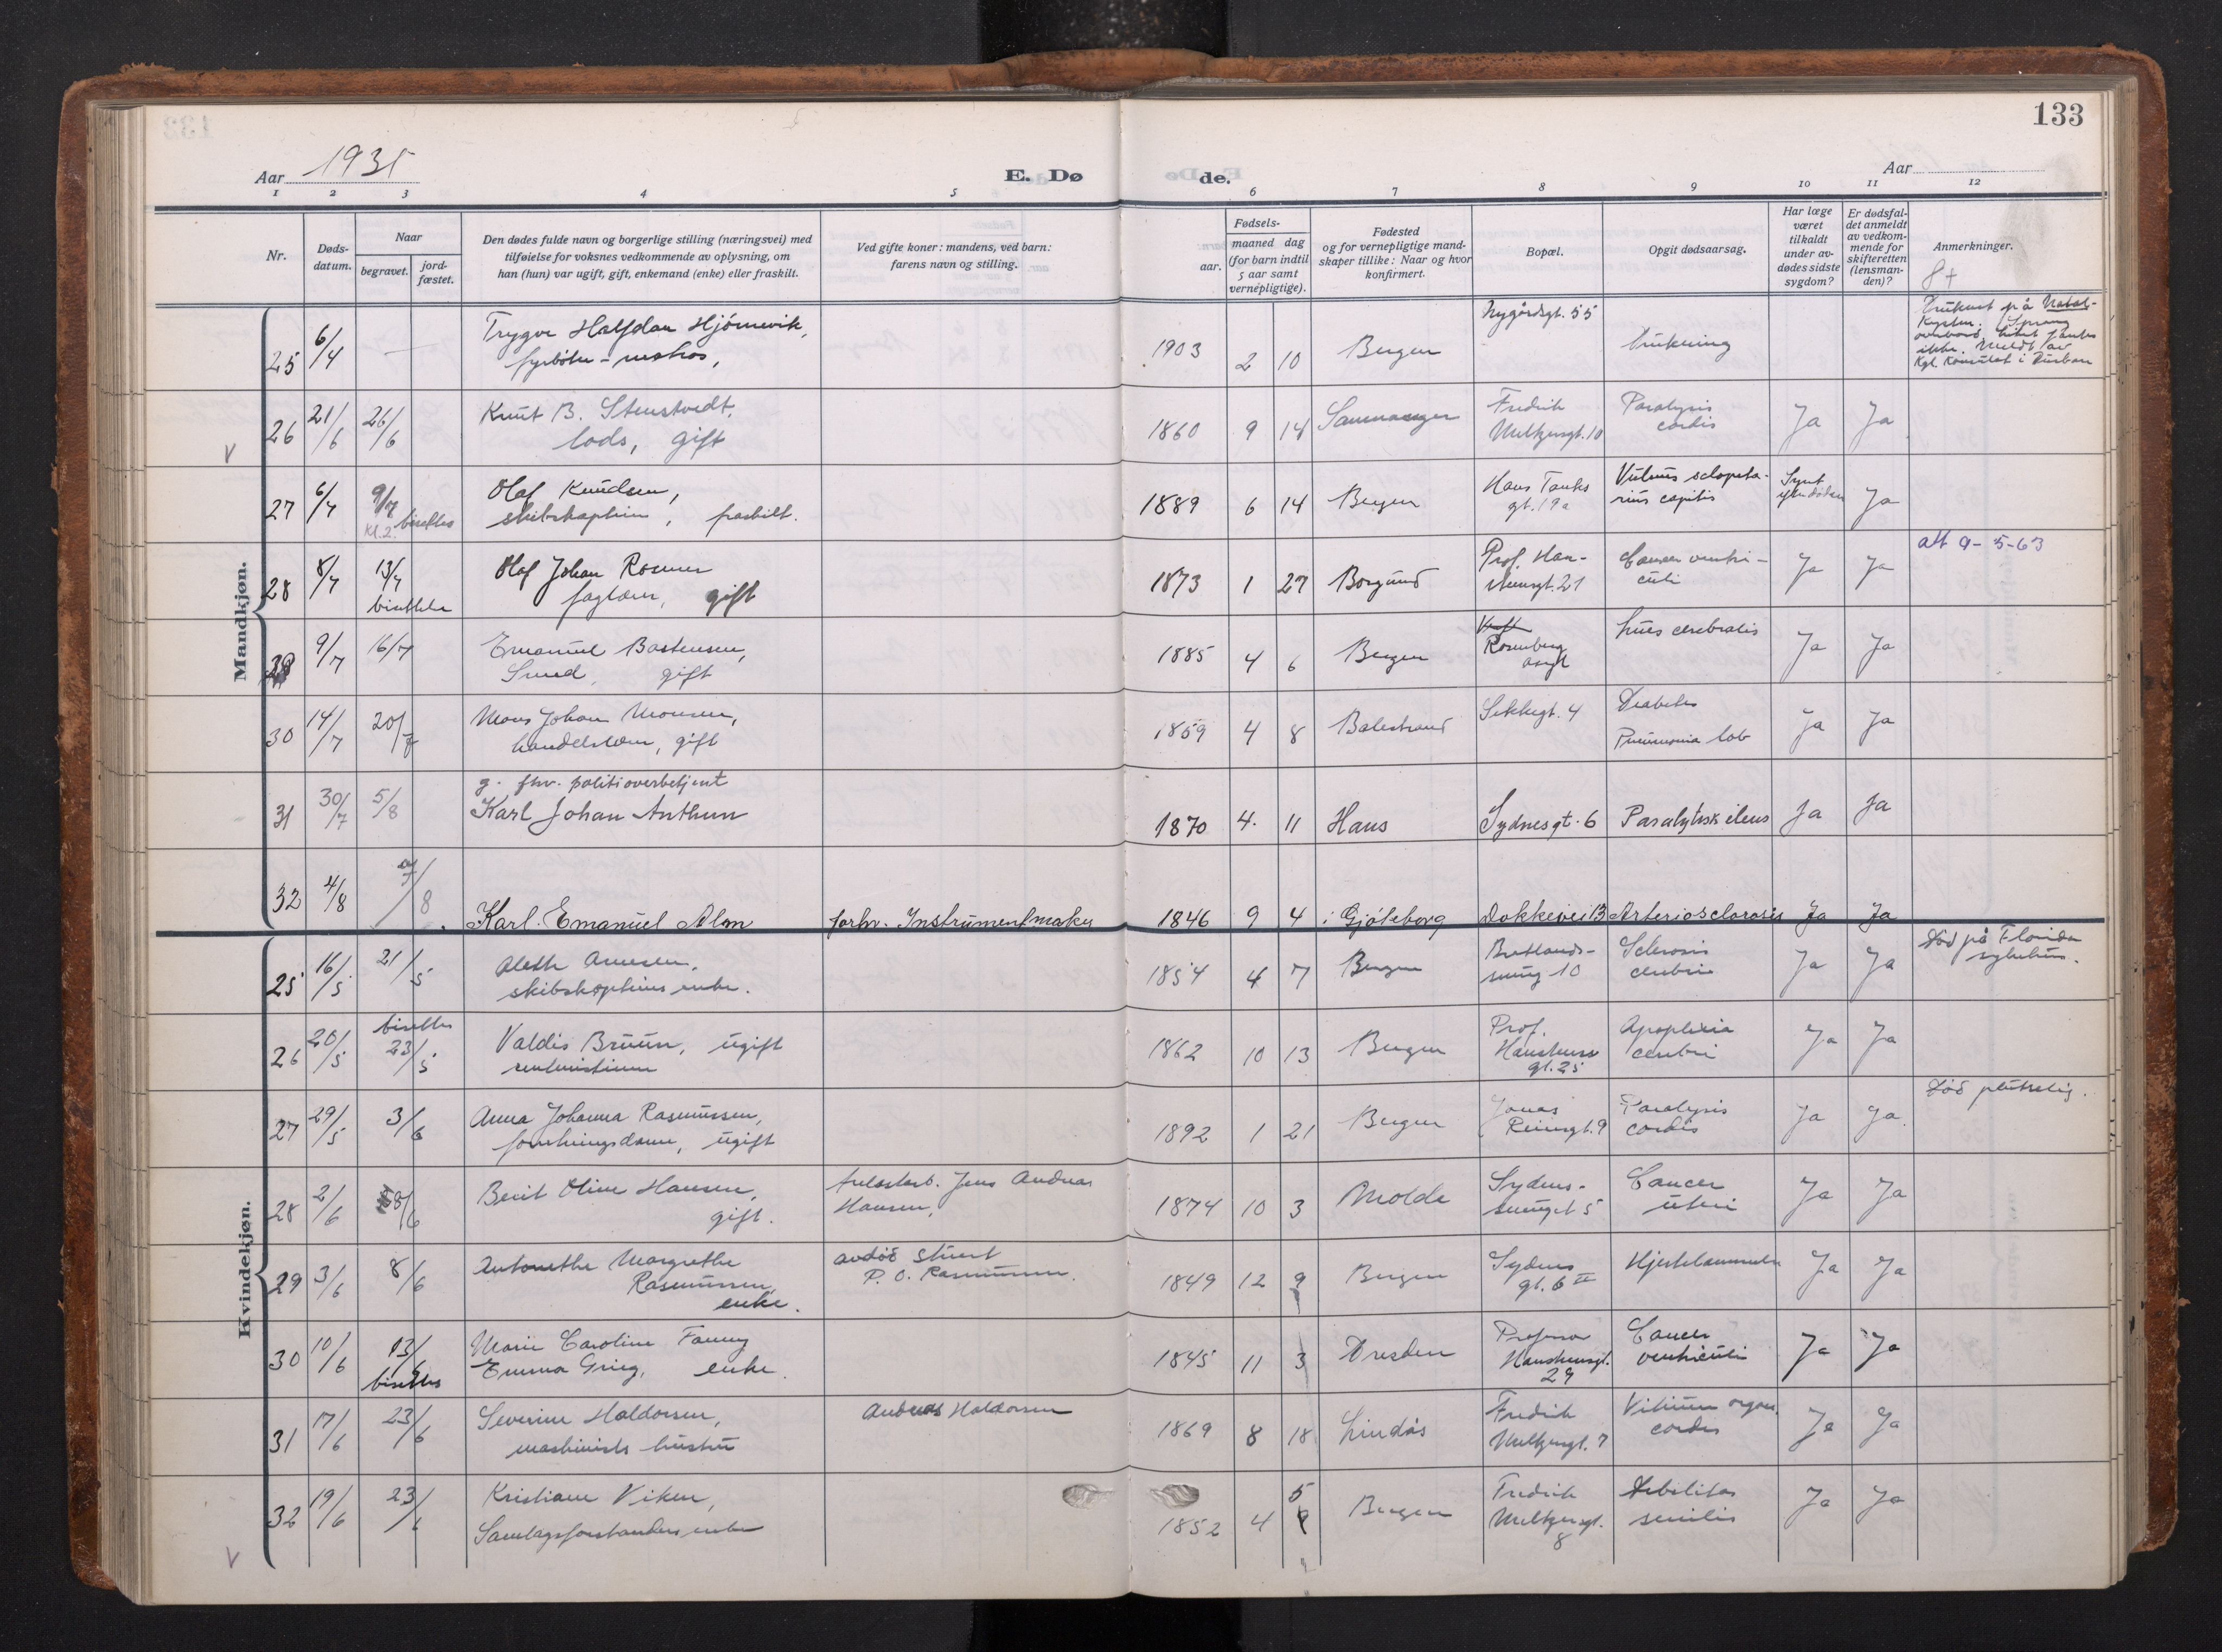 133
Aar 1931
E. Døde.
Aar
1 2 3 4 5 6 7 8 9 10 11 12
Nr.
Døds-
datum.
Naar
begravet.
jord-
fæstet.
Den dødes fulde navn og borgerlige stilling (næringsvei) med
tilføielse for voksnes vedkommende av oplysning, om
han (hun) var ugift, gift, enkemand (enke) eller fraskilt.
Ved gifte koner: mandens, ved barn:
farens navn og stilling.
Fødsels-
aar.
maaned dag
(for barn indtil
5 aar samt
vernepligtige).
Fødested
og for vernepligtige mand-
skaper tillike: Naar og hvor
konfirmert.
Bopæl.
Opgit dødsaarsag.
Har læge
været
tilkaldt
under av-
dødes sidste
sygdom?
Er dødsfal-
det anmeldt
av vedkom-
mende for
skifteretten
(lensman-
den)?
Anmerkninger.
8+
Mandkjøn.
25 6/4 — Trygve Halfdan Hjørnevik,
fyrbøter - matros,
1903 2 10 Bergen Nygårdsgt. 55 Drukning
Druknet på Natal-
Kysten. Sprang
overbord,
ikke. Meldt av
Kgl. Konsulat i Durban
26 21/6 26/6 Knut B. Stenstvedt,
lods, gift
1860 9 14 Samnanger Fredrik
Meltzersgt. 10 Paralysis
cordis Ja Ja
27 6/7 9/7 Kl. 2. bisettes Olaf Knudsen,
skibskaptein, fraskilt.
1889 6 14 Bergen Hans Tanks
gt. 19a Vulnus sclopeta-
rius capitis Synt
efter døden Ja
28 8/7 13/7
bisettelse Olaf Johan
faglærer, gift
1873 1 27 Borgund Prof. Han-
steensgt. 21 Cancer ventri-
culi Ja Ja att 9-5-63
29 9/7 16/7 Emanuel Bastensen,
Smed, gift
1885 4 6 Bergen
Rosenberg
asgt Lues cerebralis Ja Ja
30 14/7 20/7 Mons Johan Monsen,
handelsborg, gift
1859 4 8 Balestrand Sekkegt. 4 Diabetes
Pneumonia lob Ja Ja
31 30/7 5/8 g. fhv. politioverbetjent
Karl Johan Anthun
1870 4. 11 Haus Sydnesgt. 6 Paralytisk ileus Ja Ja
32 4/8 7/8 Karl Emanuel Alm forhv. Instrumentmaker 1846 9 4 i Gjøteborg Dokkevei 13 Arteriosclorosis Ja Ja
Kvindekjøn.
25 16/5 21/5 Aleth Arnesen,
skibskapteins enke.
1854 4 7 Bergen Bretlands-
smug 10 Sclerosis
cerebri Ja Ja Død på Florida
sykehus.
26 20/5 bisettes
23/5 Valdis Bruun, ugift
rentenistinne
1862 10 13 Bergen Prof.
Hansteens
gt. 25 Apoplexia
cerebri Ja Ja
27 29/5 3/6 Anna Johanna Rasmussen,
forretningsdame, ugift
1892 1 21 Bergen Jonas
Reinsgt. 9 Paralysis
cordis Ja Ja. Død plutselig.
28 2/6 8/6 Berit Oline Hansen,
gift.
Jens Andreas
Hansen,
1874 10 3 Molde Sydnes-
smuget 5 Cancer
uteri Ja Ja
29 3/6 8/6 Antonethe Margrethe
Rasmussen,
enke.
avdød
P. O. Rasmussen.
1849 12 9 Bergen Sydnes
gt. 6 II Hjertelammelse Ja Ja
30 10/6 13/6
bisettes Marie Caroline Fanny
Emma Grieg, enke.
1845 11 3 Dresden Professor
Hansteensgt.
29 Cancer
ventriculi Ja Ja
31 17/6 23/6 Severine Haldorsen,
maskinists hustru
Andreas Haldorsen
1869 8 18 Lindås Fredrik
Meltzersgt. 7 Vitium organ.
cordis Ja Ja
32 19/6 23/6 Kristiane Viken,
Samlagsforstanders enke
1852 4 5 Bergen Fredrik
Meltzersgt.
8 Debilitas
senilis Ja Ja